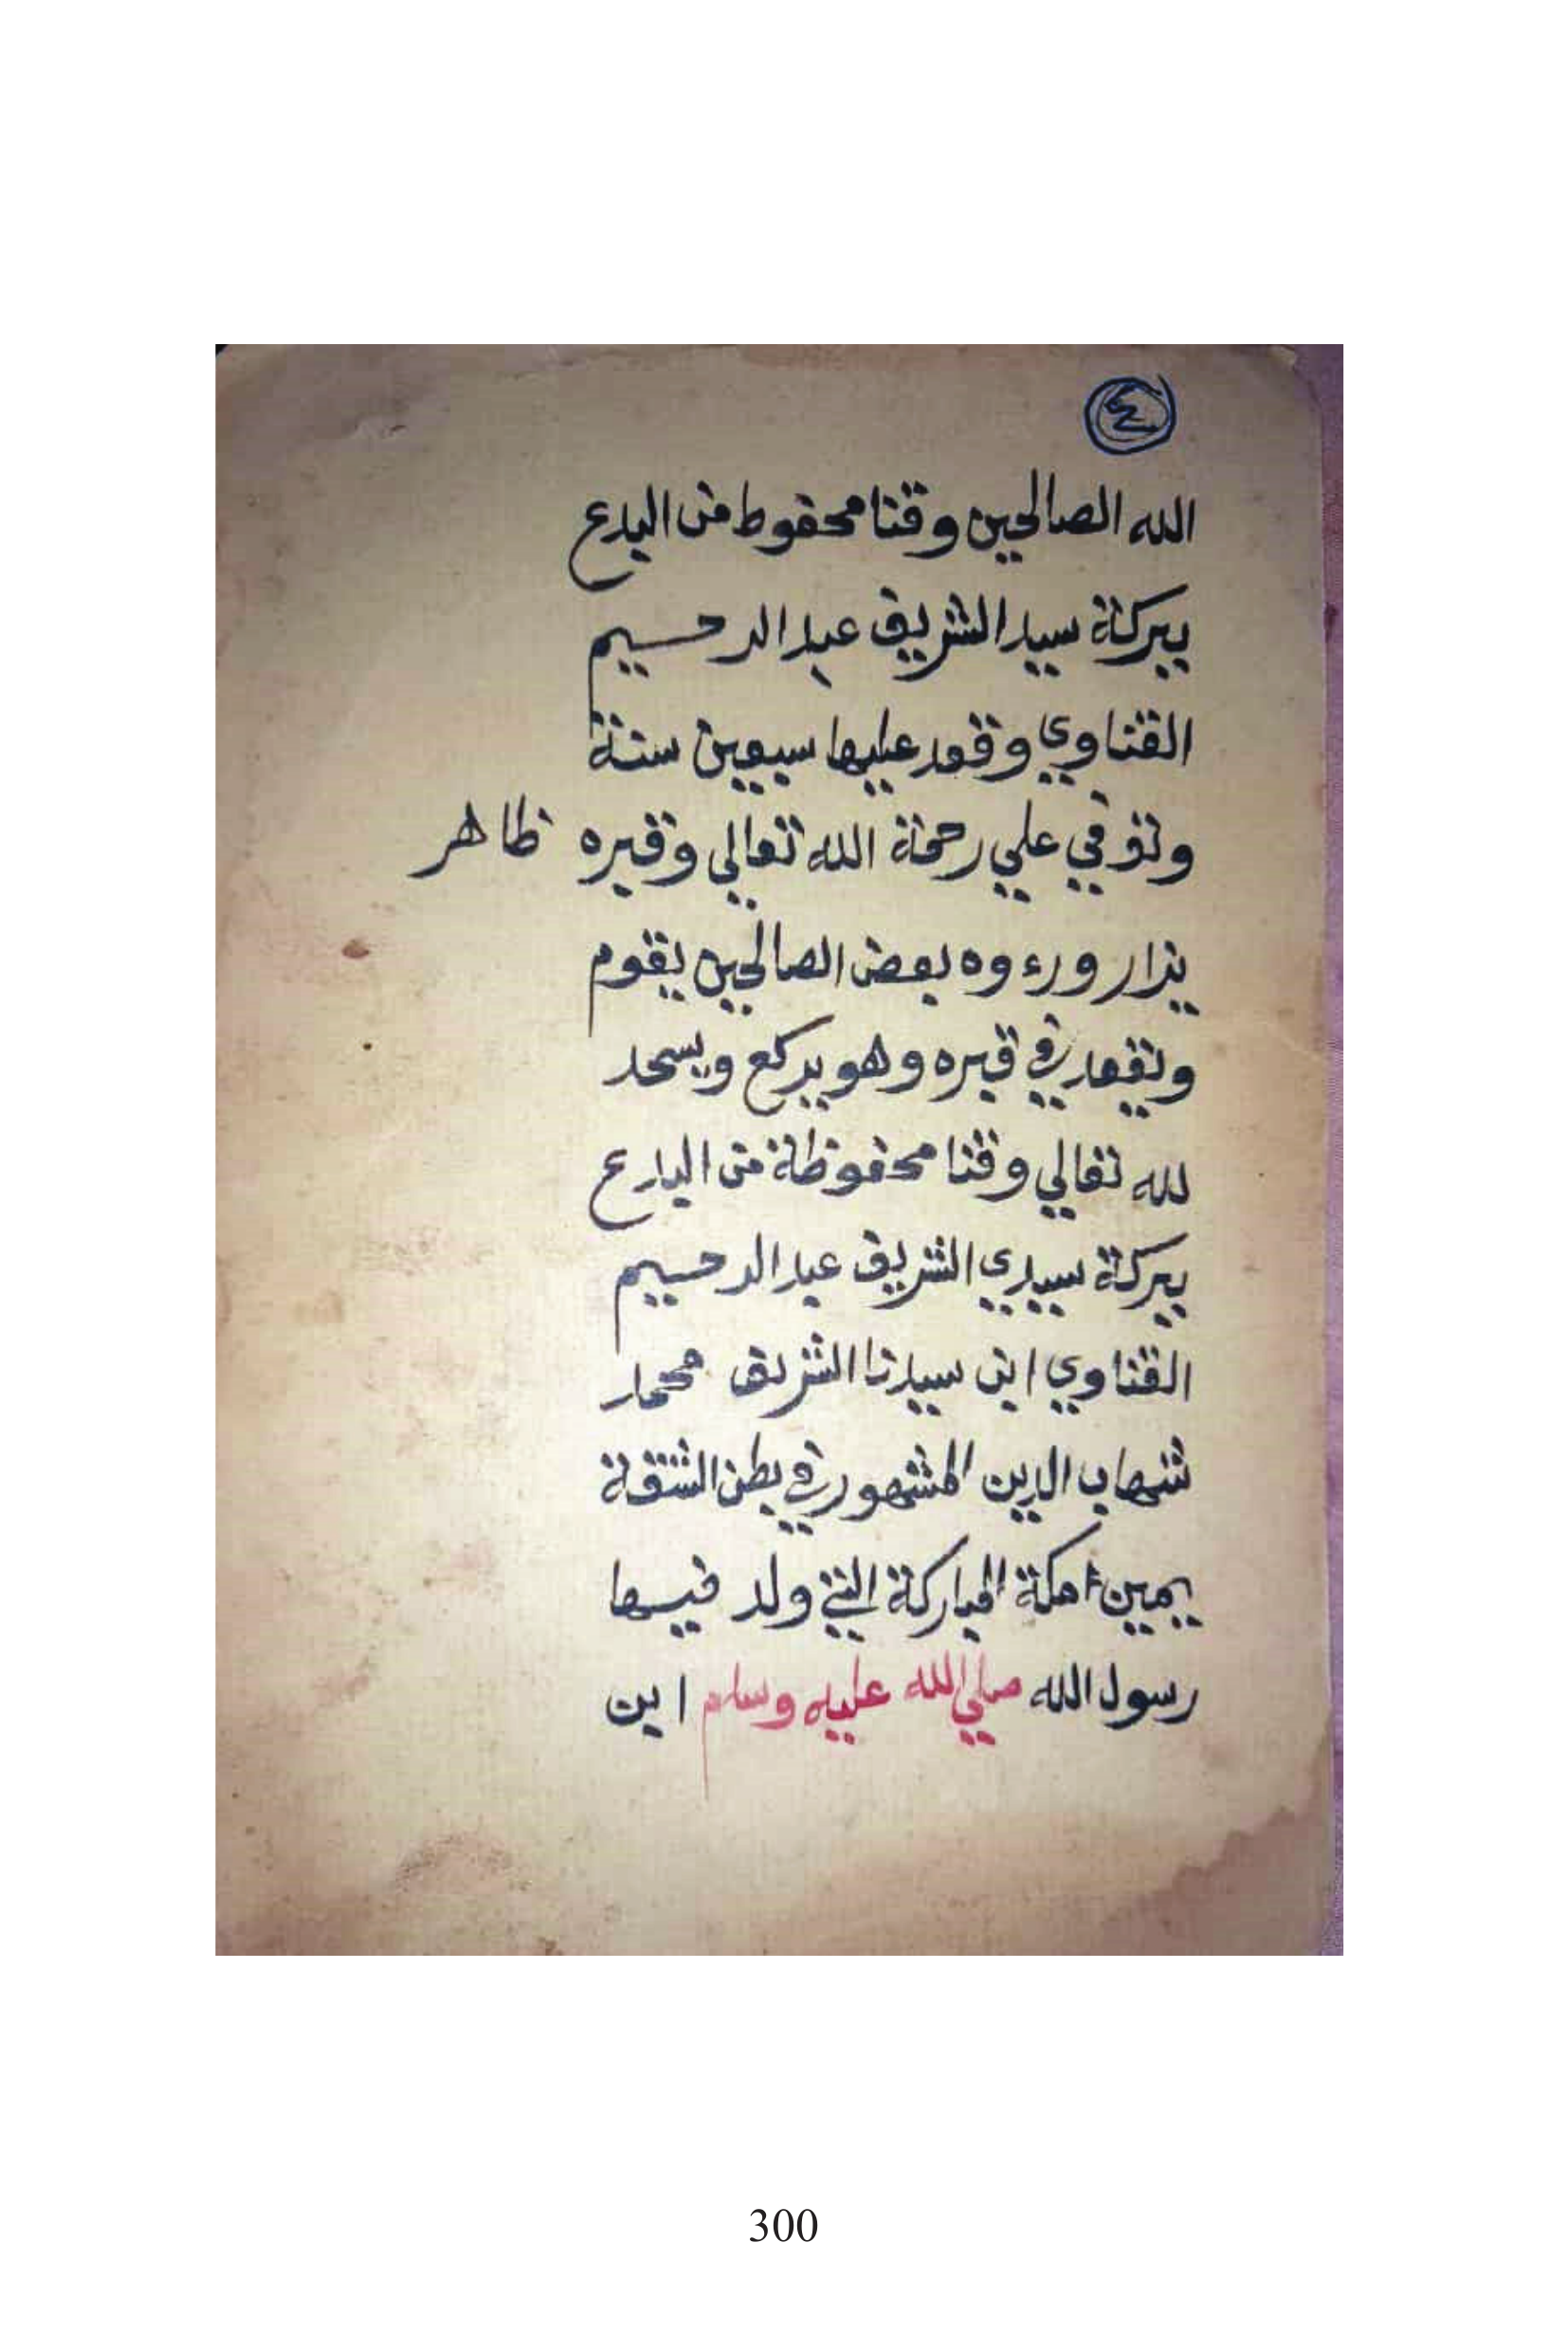 ٤
الله الصالحين وقنا محفوط من البدع
ببركة سيد الشريف عبد الرحيم
القناوي وقعد عليها سبعين سنة
وتوفي علي رحمة الله تعالي وقبره ظاهر
يزار ورءوه بعض الصالحين يقوم
ويقعد في قبره وهو يركع ويسجد
لله تعالي وقنا محفوظة من البدع
ببركة سيدي الشريف عبد الرحيم
القناوي ابن سيدنا الشريف محمد
شهاب الدين المشهور في بطن الشقة
بيمين مكة المباركة التي ولد فيها
رسول الله صلي الله عليه وسلم ابن
300